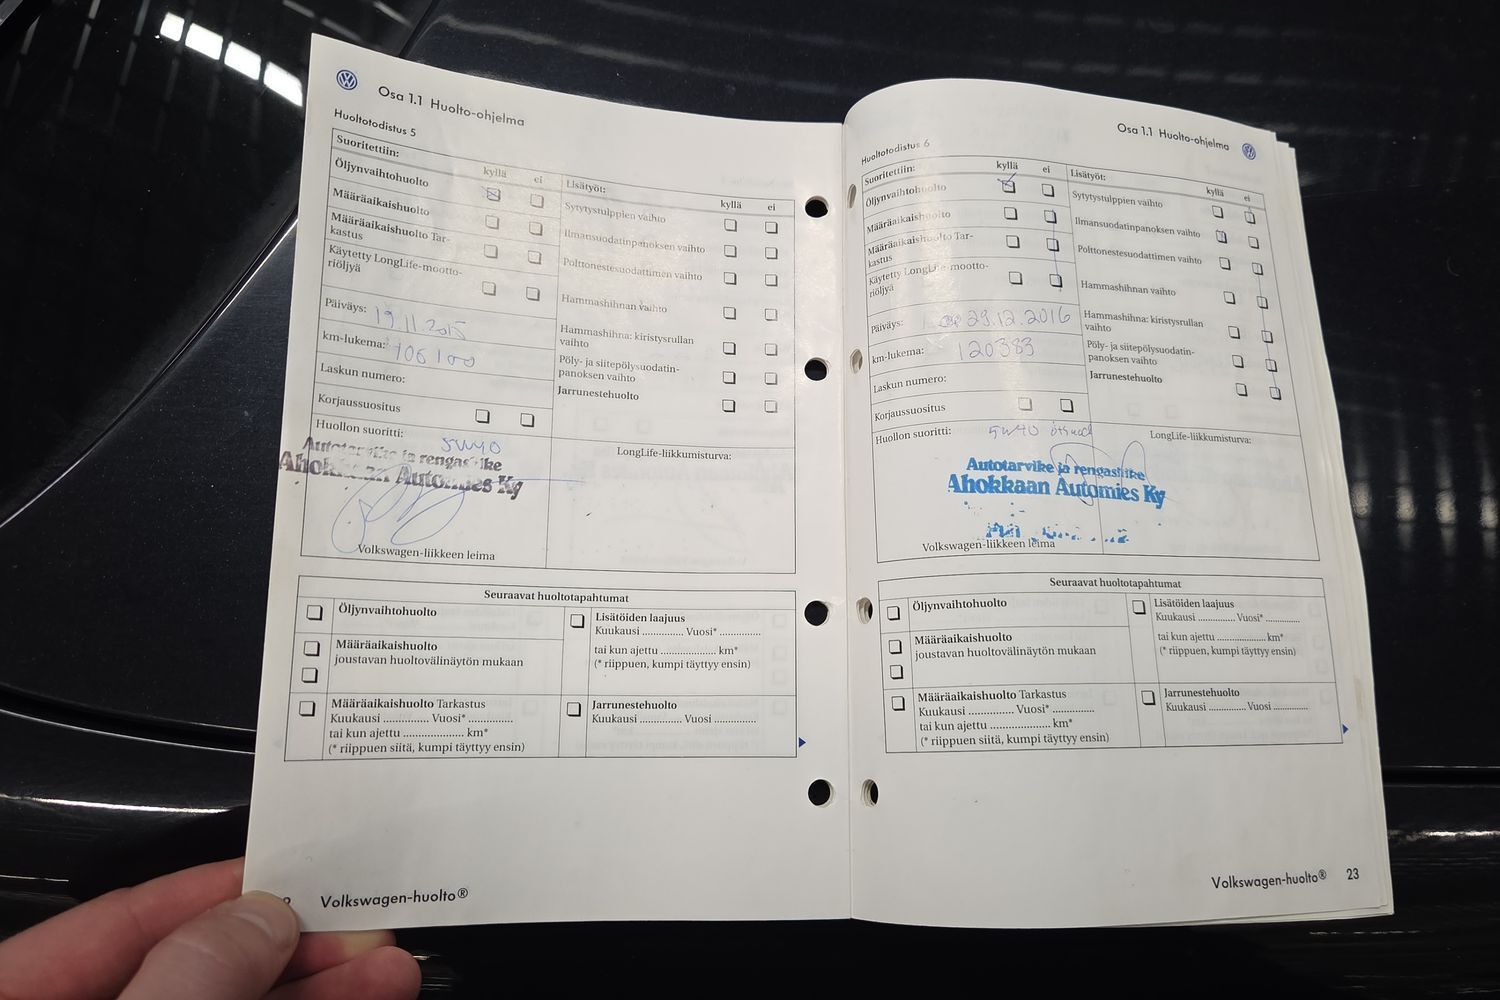 Osa 1.1 Huolto-ohjelma
Huoltotodistus 5
Suoritettiin:
kyllä ei
Öljynvaihtohuolto
Määräaikaishuolto
Määräaikaishuolto Tar-
kastus
Käytetty LongLife-mootto-
riöljyä
Päiväys: 19.11.2015
km-lukema: 106100
Laskun numero:
Korjaussuositus
Huollon suoritti:
5W40
Autotarvike ja rengasliike
Ahokkaan Automies Ky
Volkswagen-liikkeen leima
Lisätyöt:
kyllä ei
Sytytystulppien vaihto
Ilmansuodatinpanoksen vaihto
Polttonestesuodattimen vaihto
Hammashihnan vaihto
Hammashihna: kiristysrullan
vaihto
Pöly- ja siitepölysuodatin-
panoksen vaihto
Jarrunestehuolto
LongLife-liikkumisturva:
Seuraavat huoltotapahtumat
Öljynvaihtohuolto
Määräaikaishuolto
joustavan huoltovälinäytön mukaan
Määräaikaishuolto Tarkastus
Kuukausi .............. Vuosi* ..............
tai kun ajettu .................... km*
(* riippuen siitä, kumpi täyttyy ensin)
Lisätöiden laajuus
Kuukausi .............. Vuosi* ..............
tai kun ajettu .................. km*
(* riippuen, kumpi täyttyy ensin)
Jarrunestehuolto
Kuukausi ............. Vuosi .............
Volkswagen-huolto®
Osa 1.1 Huolto-ohjelma
Huoltotodistus 6
Suoritettiin:
kyllä ei
Öljynvaihtohuolto
Määräaikaishuolto
Määräaikaishuolto Tar-
kastus
Käytetty LongLife-mootto-
riöljyä
Päiväys: 29.12.2016
km-lukema: 120383
Laskun numero:
Korjaussuositus
Huollon suoritti:
5W40
Autotarvike ja rengasliike
Ahokkaan Automies Ky
Volkswagen-liikkeen leima
Lisätyöt:
kyllä ei
Sytytystulppien vaihto
Ilmansuodatinpanoksen vaihto
Polttonestesuodattimen vaihto
Hammashihnan vaihto
Hammashihna: kiristysrullan
vaihto
Pöly- ja siitepölysuodatin-
panoksen vaihto
Jarrunestehuolto
LongLife-liikkumisturva:
Seuraavat huoltotapahtumat
Öljynvaihtohuolto
Määräaikaishuolto
joustavan huoltovälinäytön mukaan
Määräaikaishuolto Tarkastus
Kuukausi .............. Vuosi* ..............
tai kun ajettu .................... km*
(* riippuen siitä, kumpi täyttyy ensin)
Lisätöiden laajuus
Kuukausi ............. Vuosi* ............
tai kun ajettu .................. km*
(* riippuen, kumpi täyttyy ensin)
Jarrunestehuolto
Kuukausi ............. Vuosi ............
Volkswagen-huolto® 23